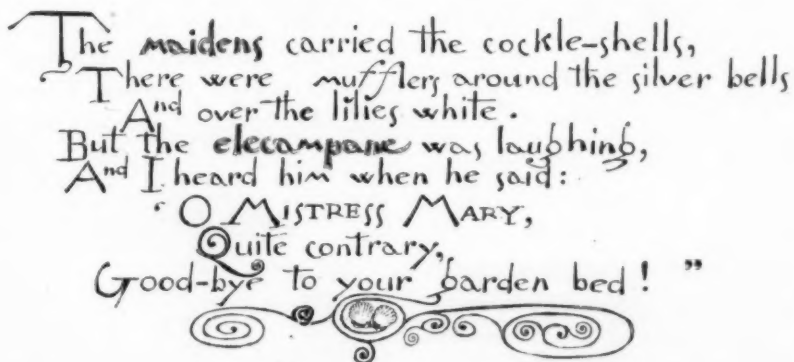 The maidens carried the cockle-shells,
There were mufflers around the silver bells
And over the lilies white.
But the elecampane was laughing,
And I heard him when he said:
‘O MISTRESS MARY,
Quite contrary,
Good-bye to your garden bed! ”